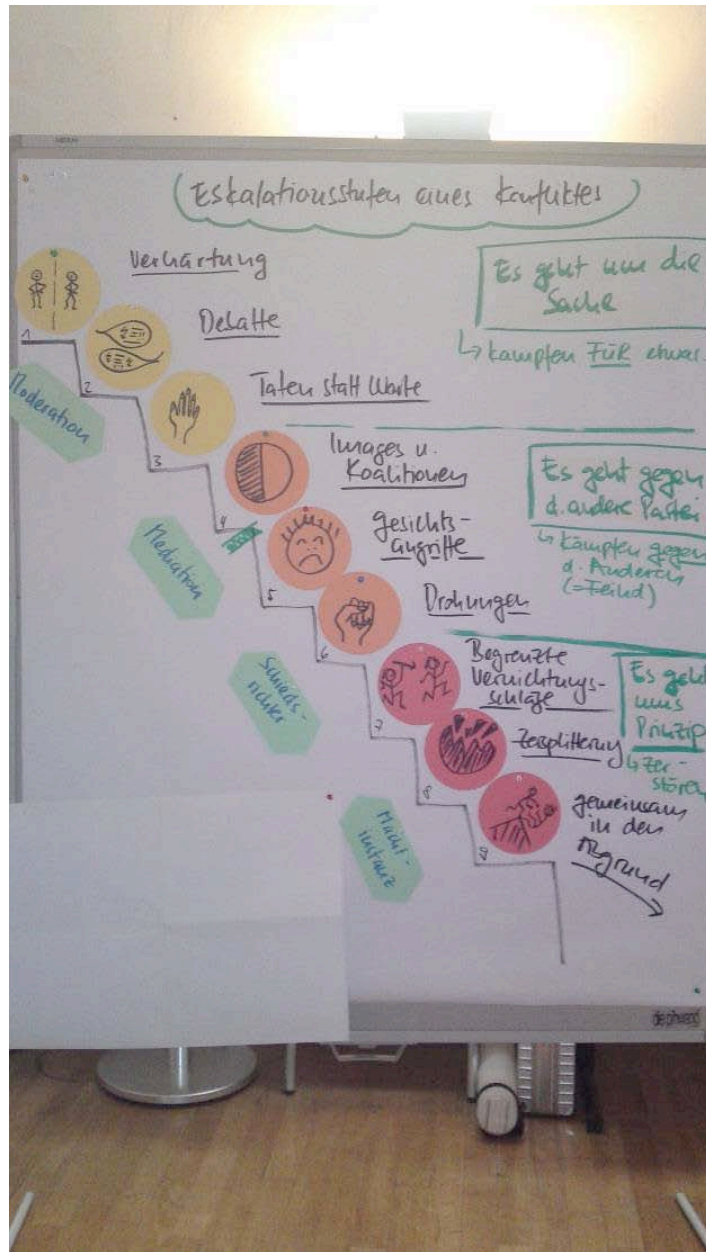 Eskalationsstufen eines Konfliktes
Verhärtung
1
Debatte
2
Taten statt Worte
3
Images u.
Koalitionen
4
Gesichts-
angriffe
5
Drohungen
6
Begrenzte
Vernichtungs-
schläge
7
Zersplitterung
8
gemeinsam
in den
Abgrund
9
Moderation
Mediation
Schieds-
richter
Macht-
instanz
Es geht um die
Sache
↳ kämpfen FÜR etwas
Es geht gegen
d. andere Partei
↳ kämpfen gegen
d. Anderen
(=Feind)
Es geht
ums
Prinzip
↳ Zer-
stören